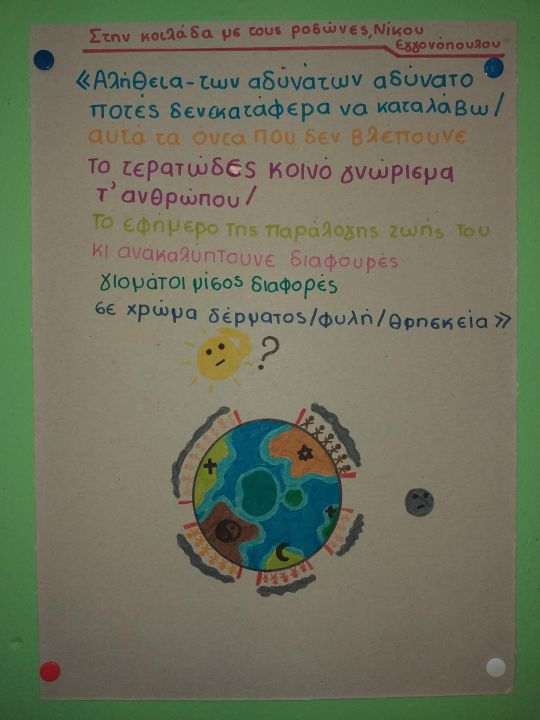 Στην κοιλάδα με τους ροδώνες, Νίκου
Εγγονόπουλου
«Αλήθεια-των αδύνατων αδύνατο
ποτές δενεκατάφερα να καταλάβω/
αυτά τα όντα που δεν βλέπουνε
το τερατώδες κοινό γνώρισμα
τ' ανθρώπου/
Το εφήμερο της παράλογης ζωής του
κι ανακαλύπτουνε διαφουρές
γιομάτοι μίσος διαφορές
σε χρώμα δέρματος/φυλή/θρησκεία»
?